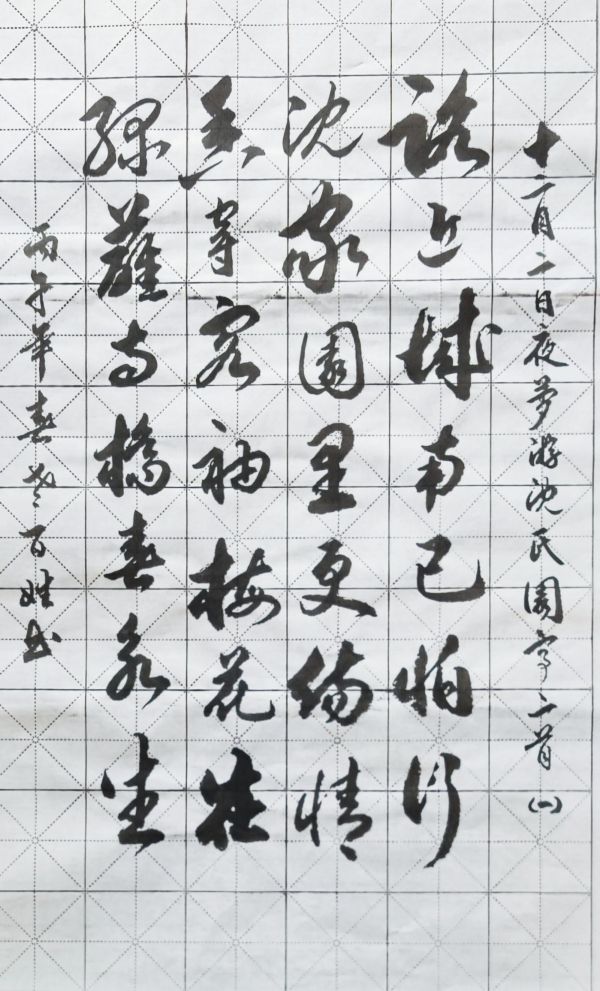 十二月二日夜夢游沈氏園亭二首(一)
路近城南已怕行
沈家園里更傷情
香穿客袖梅花在
綠蘸寺橋春水生
丙午年春老百姓书